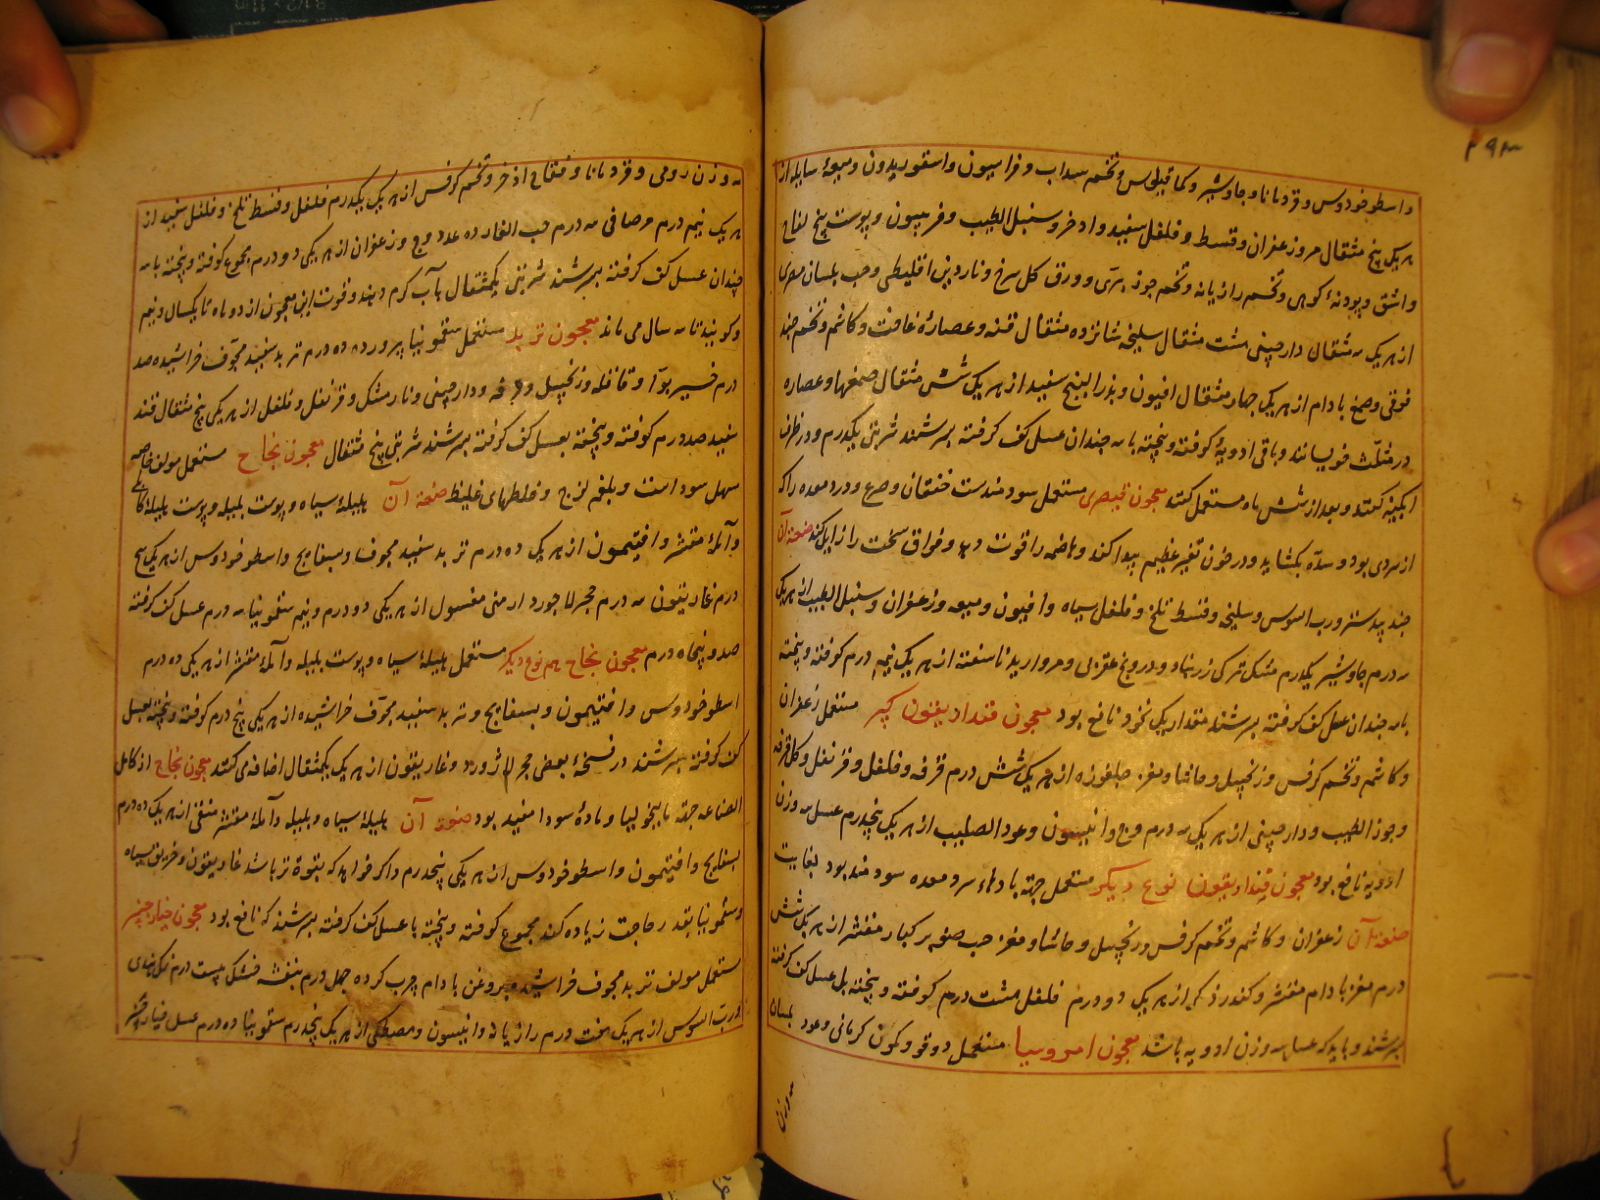 ۲۹۳
و اسطوخودوس و قردمانا و جاوشیر و کمافیطوس و تخم سداب و فراسیون و اسقوردیون و میعهٔ سایله از
هر یک پنج مثقال مر و زعفران و قسط و فلفل سفید و اذخر و سنبل الطیب و فربیون و پوست بیخ لفاح
و اشق و پودنهٔ کوهی و تخم رازیانه و تخم جوز بری و ورق کل سرخ و ناردین اقلیطی و حب بلسان مصری
از هر یک سه مثقال دارچینی هشت مثقال سلیخه شانزده مثقال قنه و عصارهٔ غافث و کاشم و تخم
و صمغ بادام از هر یک چهار مثقال افیون و بذر البنج سفید از هر یک شش مثقال صمغها و عصاره
در مثلث خویسانند و باقی ادویه کوفته و پیخته با سه چندان عسل کف کرفته بسرشند شربتی یکدرم و در ظرف
ابکینه کنند و بعد از شش ماه مستعمل کنند معجون قیصری مستعمل سودمندست خفقان و صرع و درد معده را که
از سردی بود و سده بکشاید و در خون تغییر عظیم پیدا کند و هاضمه را قوت دهد و فواق سخت را زایل کند صنعة آن
جندبیدستر و رب السوس و سلیخه و قسط تلخ و فلفل سیاه و افیون و میعه و زعفران و سنبل الطیب از هر یک
سه درم جاوشیر یکدرم مشک ترکی زرنباد و درونج عقربی و مروارید ناسفته از هر یک نیم درم کوفته و پیخته
با سه چندان عسل کف کرفته بسرشند مقدار یک نخود نافع بود معجون قندادیقون کبیر مستعمل زعفران
و کاشم و تخم کرفس و زنجبیل و حاشا و مغز چلغوزه از هر یک شش درم قرفه و فلفل و قرنفل و کل قرفه
و جوز الطیب و دارچینی از هر یک سه درم وج و انیسون و عود الصلیب از هر یک پنجدرم عسل سه وزن
ادویه نافع بود معجون قندادیقون نوع دیکر مستعمل جهة بادها سرد معده سودمند بود بغایت
صنعة آن زعفران و کاشم و تخم کرفس و زنجبیل و حاشا و مغز حب صنوبر کبار مقشر از هر یک شش
درم مغز بادام مقشر و کندر ذکر از هر یک دو درم فلفل هشت درم کوفته و پیخته بعسل کف کرفته
بسرشند و باید که عسل سه وزن ادویه باشد معجون امروسیا مستعمل دوقو و کمون کرمانی و عود بلسان
سه وزن
سه وزن رومی و قردمانا و فقاح اذخر و تخم کرفس از هر یک یکدرم فلفل و قسط تلخ و فلفل سفید از
هر یک نیم درم مر صافی سه درم حب الغار ده عدد وج و زعفران از هر یکی دو درم مجموع کوفته و پیخته با سه
چندان عسل کف کرفته بسرشند شربتی یکمثقال بآب کرم دهند و قوت این معجون از دو ماه تا یکسال و نیم
و کویند تا سه سال می ماند معجون تربد مستعمل سقمونیا پرورده ده درم تربد سفید مجوف خراشیده صد
درم خیربوا و قاقله و زنجبیل و قرفه و دارچینی و نارمشک و قرنفل و فلفل از هر یکی پنج مثقال قند
سفید صد درم کوفته و پیخته بعسل کف کرفته بسرشند شربتی پنج مثقال معجون نجاح مستعمل مولف خاصه
مسهل سوداست و بلغم لزج و خلطهای غلیظ صنعة آن هلیلهٔ سیاه و پوست بلیله و پوست هلیلهٔ کابلی
و آملهٔ مقشر و افتیمون از هر یک ده درم تربد سفید مجوف و بسفایج و اسطوخودوس از هر یک پنج
درم غاریقون سه درم حجر لاجورد ارمنی مغسول از هر یکی دو درم و نیم سقمونیا سه درم عسل کف کرفته
صد و پنجاه درم معجون نجاح هم نوع دیکر مستعمل هلیلهٔ سیاه و پوست بلیله و آملهٔ مقشر از هر یکی ده درم
اسطوخودوس و افتیمون و بسفایج و تربد سفید مجوف خراشیده از هر یکی پنج درم کوفته و پیخته بعسل
کف کرفته بسرشند در نسخهٔ بعضی حجر لاژورد و غاریقون از هر یک یکمثقال اضافه می کنند معجون نجاح از کامل
الصناعه جهة مالیخولیا و مادهٔ سودا مفید بود صنعة آن هلیلهٔ سیاه و بلیله و آملهٔ مقشر منقی از هر یک ده درم
بسفایج و افتیمون و اسطوخودوس از هر یکی پنجدرم و اکر خواهد که بقوة تر باشد غاریقون و خربق سیاه
و سقمونیا بقدر حاجت زیاده کند مجموع کوفته و پیخته با عسل کف کرفته بسرشند که نافع بود معجون خیارچنبر
مستعمل مولف تربد مجوف خراشیده و بروغن بادام چرب کرده چهل درم بنفشه خشک بیست درم نمک هندی
و رب السوس از هر یک هفت درم رازیانه و انیسون و مصطکی از هر یک پنجدرم سقمونیا ده درم عسل خیارچنبر